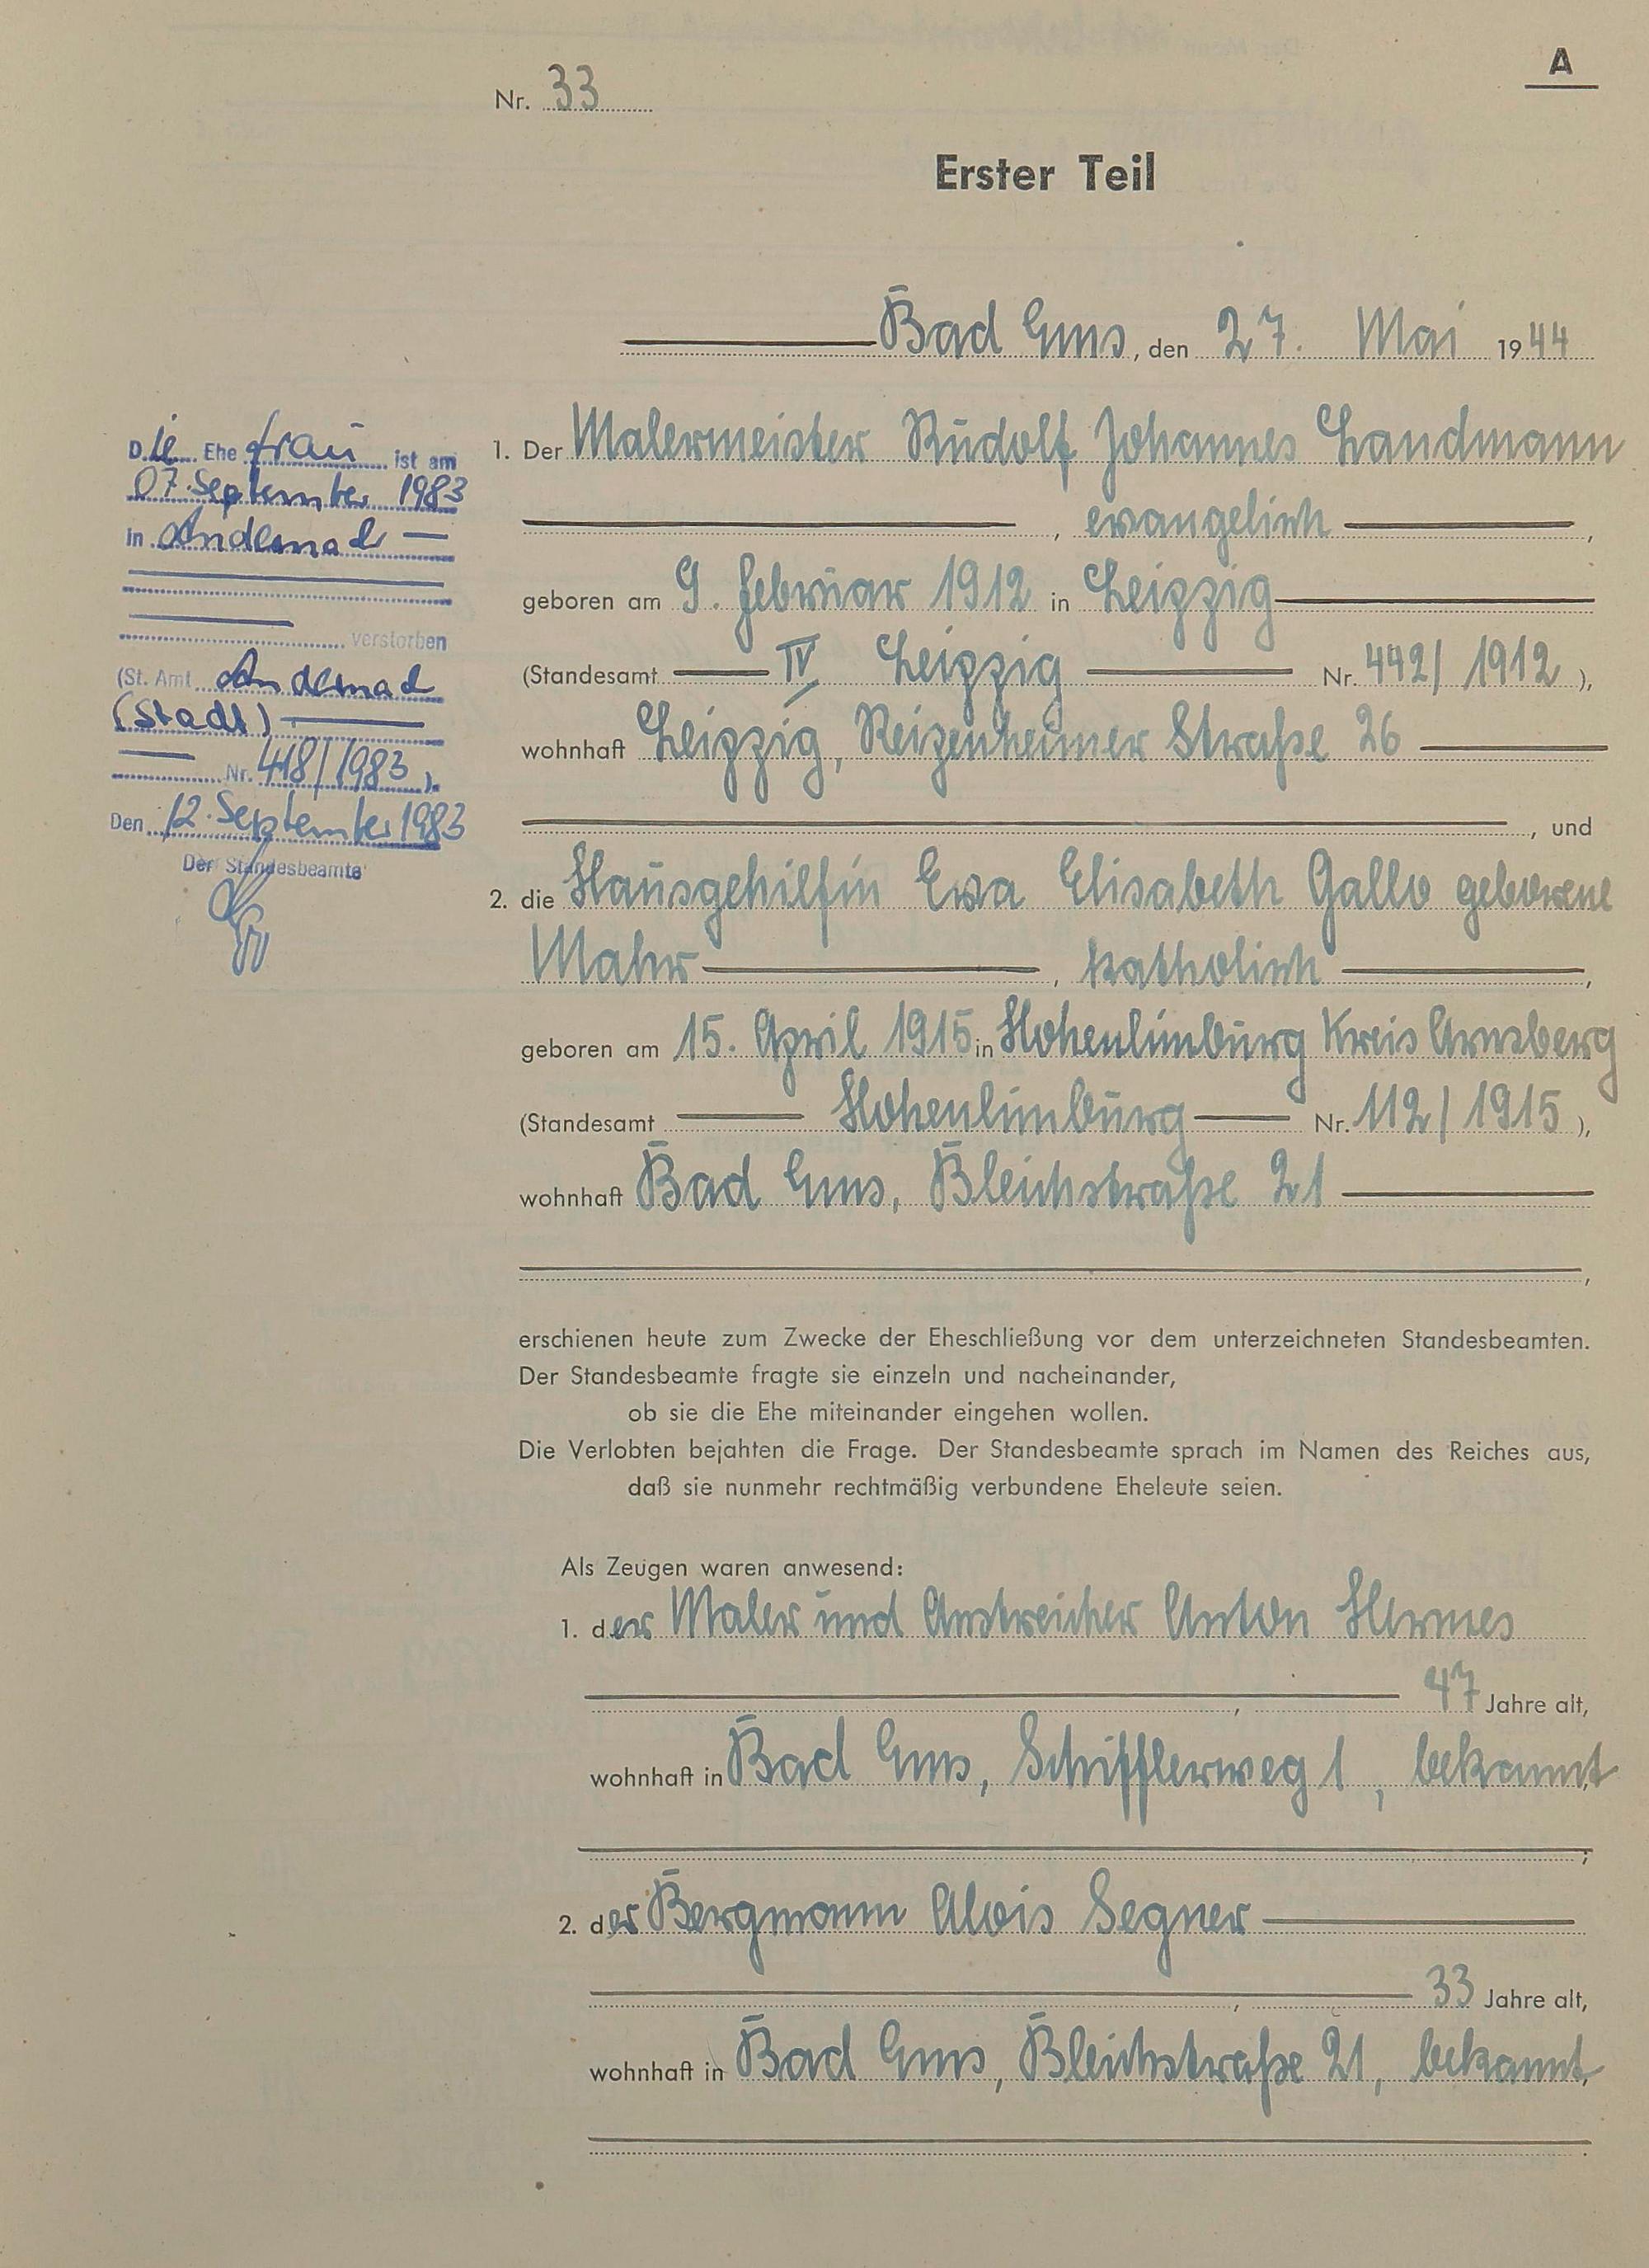 A
Nr. 33
Erster Teil
Bad Ems, den 27. Mai 1944
Die Ehefrau ist am
07. September 1983
in Andernach
verstorben
(St. Amt Andernach
(Stadt)
Nr. 418/1983).
Den 12. September 1983
Der Standesbeamte
1. Der Malermeister Rudolf Johannes Landmann
, evangelisch,
geboren am 9. Februar 1912 in Leipzig
(Standesamt IV Leipzig Nr. 442/1912),
wohnhaft Leipzig, Reizenheimer Straße 26
, und
2. die Hausgehilfin Eva Elisabeth Gallo geborene
Mahr, katholisch,
geboren am 15. April 1915 in Hohenlimburg Kreis Arnsberg
(Standesamt Hohenlimburg Nr. 112/1915),
wohnhaft Bad Ems, Bleichstraße 21
,
erschienen heute zum Zwecke der Eheschließung vor dem unterzeichneten Standesbeamten.
Der Standesbeamte fragte sie einzeln und nacheinander,
ob sie die Ehe miteinander eingehen wollen.
Die Verlobten bejahten die Frage. Der Standesbeamte sprach im Namen des Reiches aus,
daß sie nunmehr rechtmäßig verbundene Eheleute seien.
Als Zeugen waren anwesend:
1. der Maler und Anstreicher Anton Hermes
, 47 Jahre alt,
wohnhaft in Bad Ems, Schifflerweg 1, bekannt
;
2. der Bergmann Alois Segner
, 33 Jahre alt,
wohnhaft in Bad Ems, Bleichstraße 21, bekannt
.